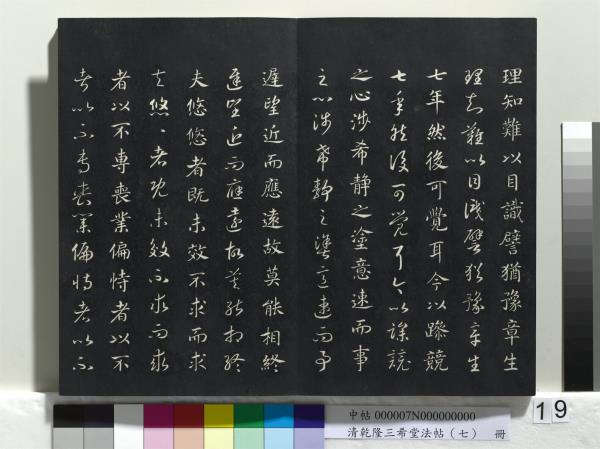 理知難以目識譬猶豫章生
理知難以目識譬猶豫章生
七年然後可覺耳今以躁競
七年然後可覺耳今以躁競
之心涉希静之塗意速而事
之心涉希静之塗意速而事
遲望近而應遠故莫能相終
遲望近而應遠故莫能相終
夫悠悠者既未效不求而求
夫悠〻者既未效不求而求
者以不專喪業偏恃者以不
者以不專喪業偏恃者以不
中帖 000007N000000000
清乾隆三希堂法帖（七） 冊
19